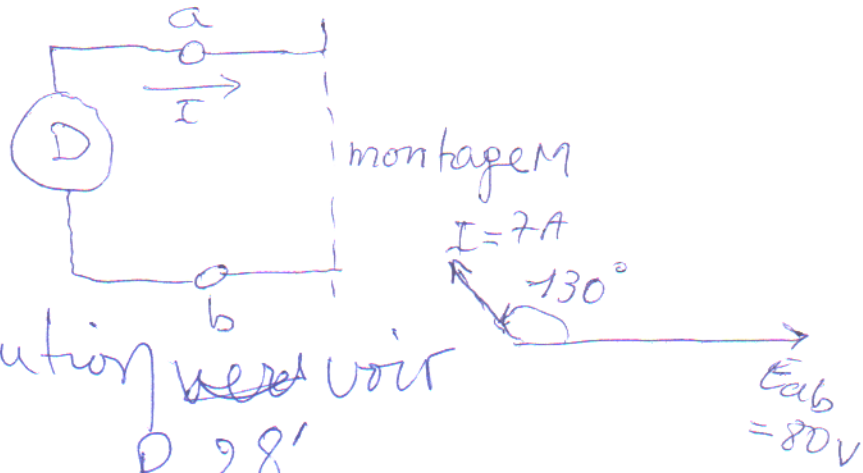 a
I
D
montage M
I = 7A
130°
b
Eab
= 80V
ution voir